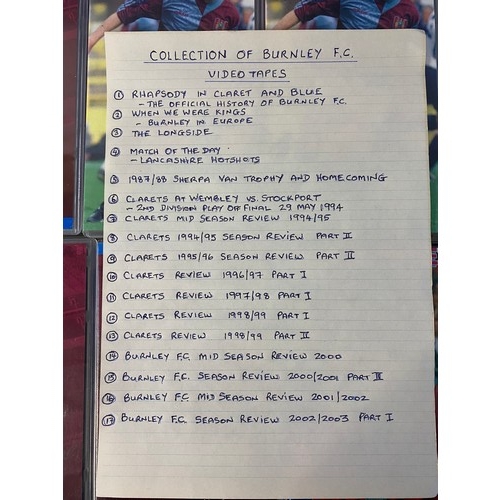 COLLECTION OF BURNLEY F.C.
VIDEO TAPES
① RHAPSODY IN CLARET AND BLUE
- THE OFFICIAL HISTORY OF BURNLEY F.C.
② WHEN WE WERE KINGS
- BURNLEY IN EUROPE
③ THE LONGSIDE
④ MATCH OF THE DAY
- LANCASHIRE HOTSHOTS
⑤ 1987/88 SHERPA VAN TROPHY AND HOMECOMING
⑥ CLARETS AT WEMBLEY VS. STOCKPORT
- 2ND DIVISION PLAY OF FINAL 29 MAY 1994
⑦ CLARETS MID SEASON REVIEW 1994/95
⑧ CLARETS 1994/95 SEASON REVIEW PART II
⑨ CLARETS 1995/96 SEASON REVIEW PART II
⑩ CLARETS REVIEW 1996/97 PART I
⑪ CLARETS REVIEW 1997/98 PART I
⑫ CLARETS REVIEW 1998/99 PART I
⑬ CLARETS REVIEW 1998/99 PART II
⑭ BURNLEY F.C. MID SEASON REVIEW 2000
⑮ BURNLEY F.C. SEASON REVIEW 2000/2001 PART II
⑯ BURNLEY F.C. MID SEASON REVIEW 2001/2002
⑰ BURNLEY F.C. SEASON REVIEW 2002/2003 PART I